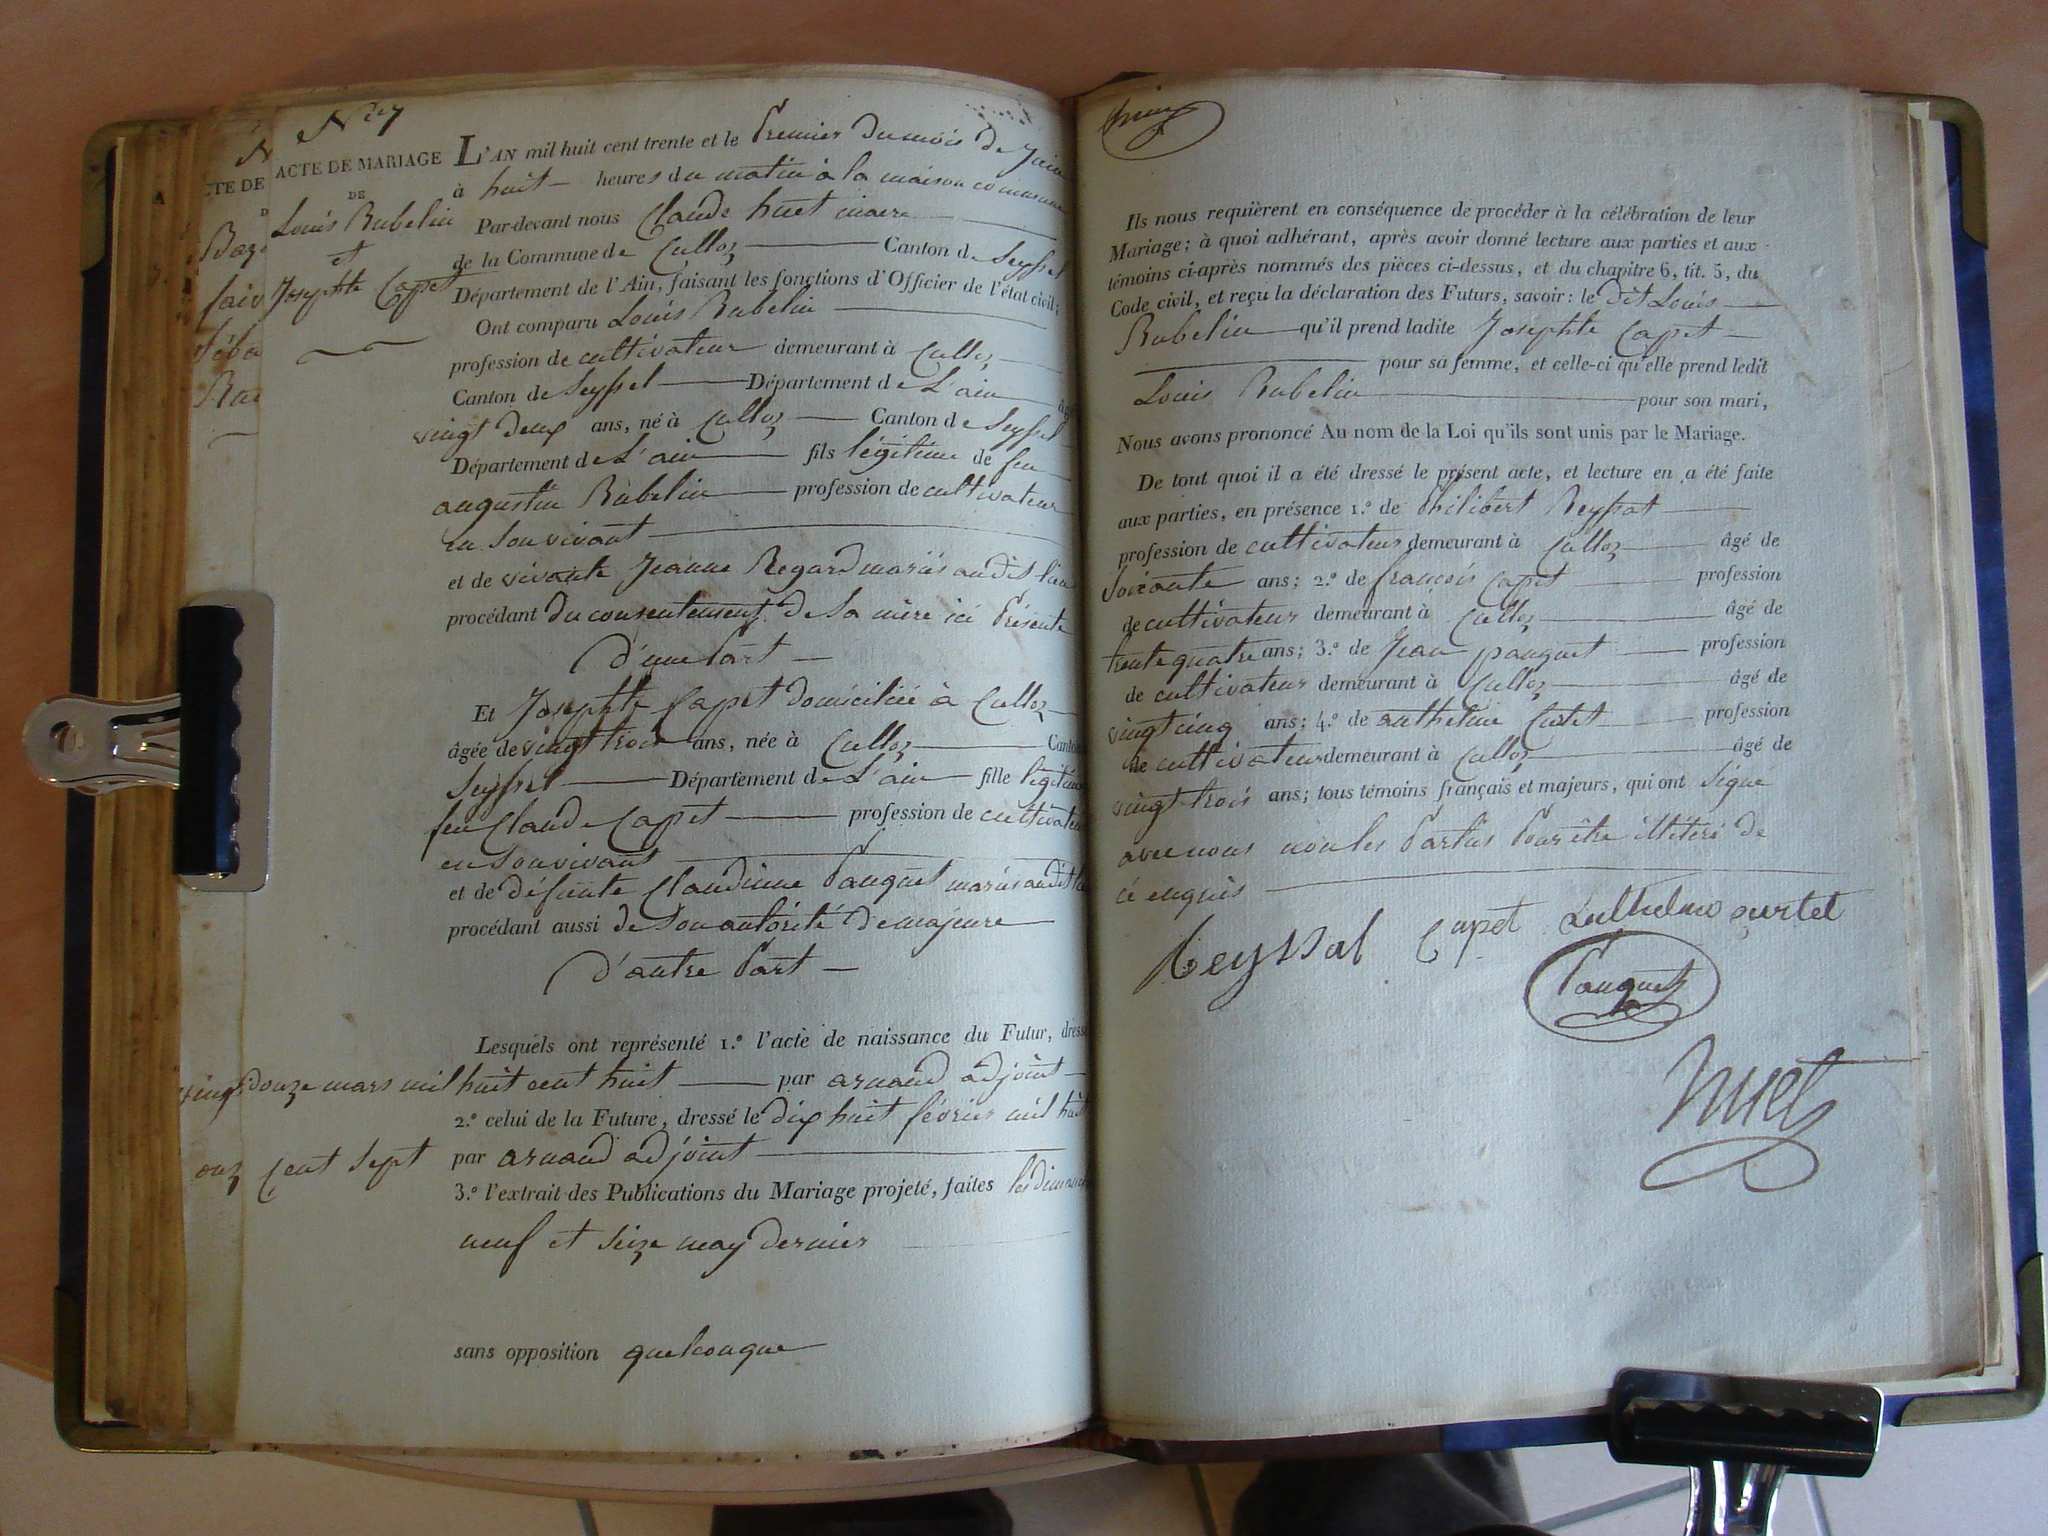 N° 7
ACTE DE MARIAGE
DE
Louis Rubelin
et
Josephte Capet
L'AN mil huit cent trente et le Premier du mois de Juin
à huit heures du matin à la maison commune
Par-devant nous Claude huet maire
de la Commune de Culloz Canton de Seyssel
Département de l'Ain, faisant les fonctions d'Officier de l'état civil;
Ont comparu Louis Rubelin
profession de cultivateur demeurant à Culloz
Canton de Seyssel Département de L'ain âgé
vingt deux ans, né à Culloz Canton de Seyssel
Département de L'ain fils légitime de feu
augustin Rubelin profession de cultivateur
en son vivant
et de vivante Jeanne Regard mariés audit lieu
procédant du consentement de sa mère ici Présente
d'une Part
Et Josephte Capet domiciliée à Culloz
âgée de vingt trois ans, née à Culloz Canton
Seyssel Département de L'ain fille légitime
feu Claude Capet profession de cultivateur
en son vivant
et de défunte Claudinne Pauguet mariés audit
procédant aussi de son autorité de majeure
d'autre Part
Lesquels ont représenté 1.° l'acte de naissance du Futur, dressé
douze mars mil huit cent huit par arnaud adjoint
2.° celui de la Future, dressé le dix huit février mil huit
Cent sept par arnaud adjoint
3.° l'extrait des Publications du Mariage projeté, faites les dimanches
neuf et seize may dernier
sans opposition quelconque
Ils nous requièrent en conséquence de procéder à la célébration de leur
Mariage; à quoi adhérant, après avoir donné lecture aux parties et aux
témoins ci-après nommés des pièces ci-dessus, et du chapitre 6, tit. 5, du
Code civil, et reçu la déclaration des Futurs, savoir: le dit Louis
Rubelin qu'il prend ladite Josephte Capet
pour sa femme, et celle-ci qu'elle prend ledit
Louis Rubelin pour son mari,
Nous avons prononcé Au nom de la Loi qu'ils sont unis par le Mariage.
De tout quoi il a été dressé le présent acte, et lecture en a été faite
aux parties, en présence 1.° de Philibert Reyssat
profession de cultivateur demeurant à Culloz âgé de
soixante ans; 2.° de françois Capet profession
de cultivateur demeurant à Culloz âgé de
trente quatre ans; 3.° de Jean pauguet profession
de cultivateur demeurant à Culloz âgé de
vingt cinq ans; 4.° de anthelme Curtet profession
de cultivateur demeurant à Culloz âgé de
vingt trois ans; tous témoins français et majeurs, qui ont signé
avec nous non les Parties Pour être illitéré de
ce enquis
Reyssat Capet curtet
Pauguet
huet